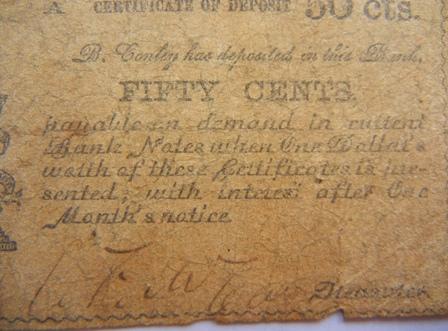 A CERTIFICATE OF DEPOSIT 50 cts.
B. Conley has deposited in this Bank,
FIFTY CENTS,
payable on demand in current
Bank Notes when One Dollar's
worth of these Certificates is pre-
sented; with interest after One
Month's notice